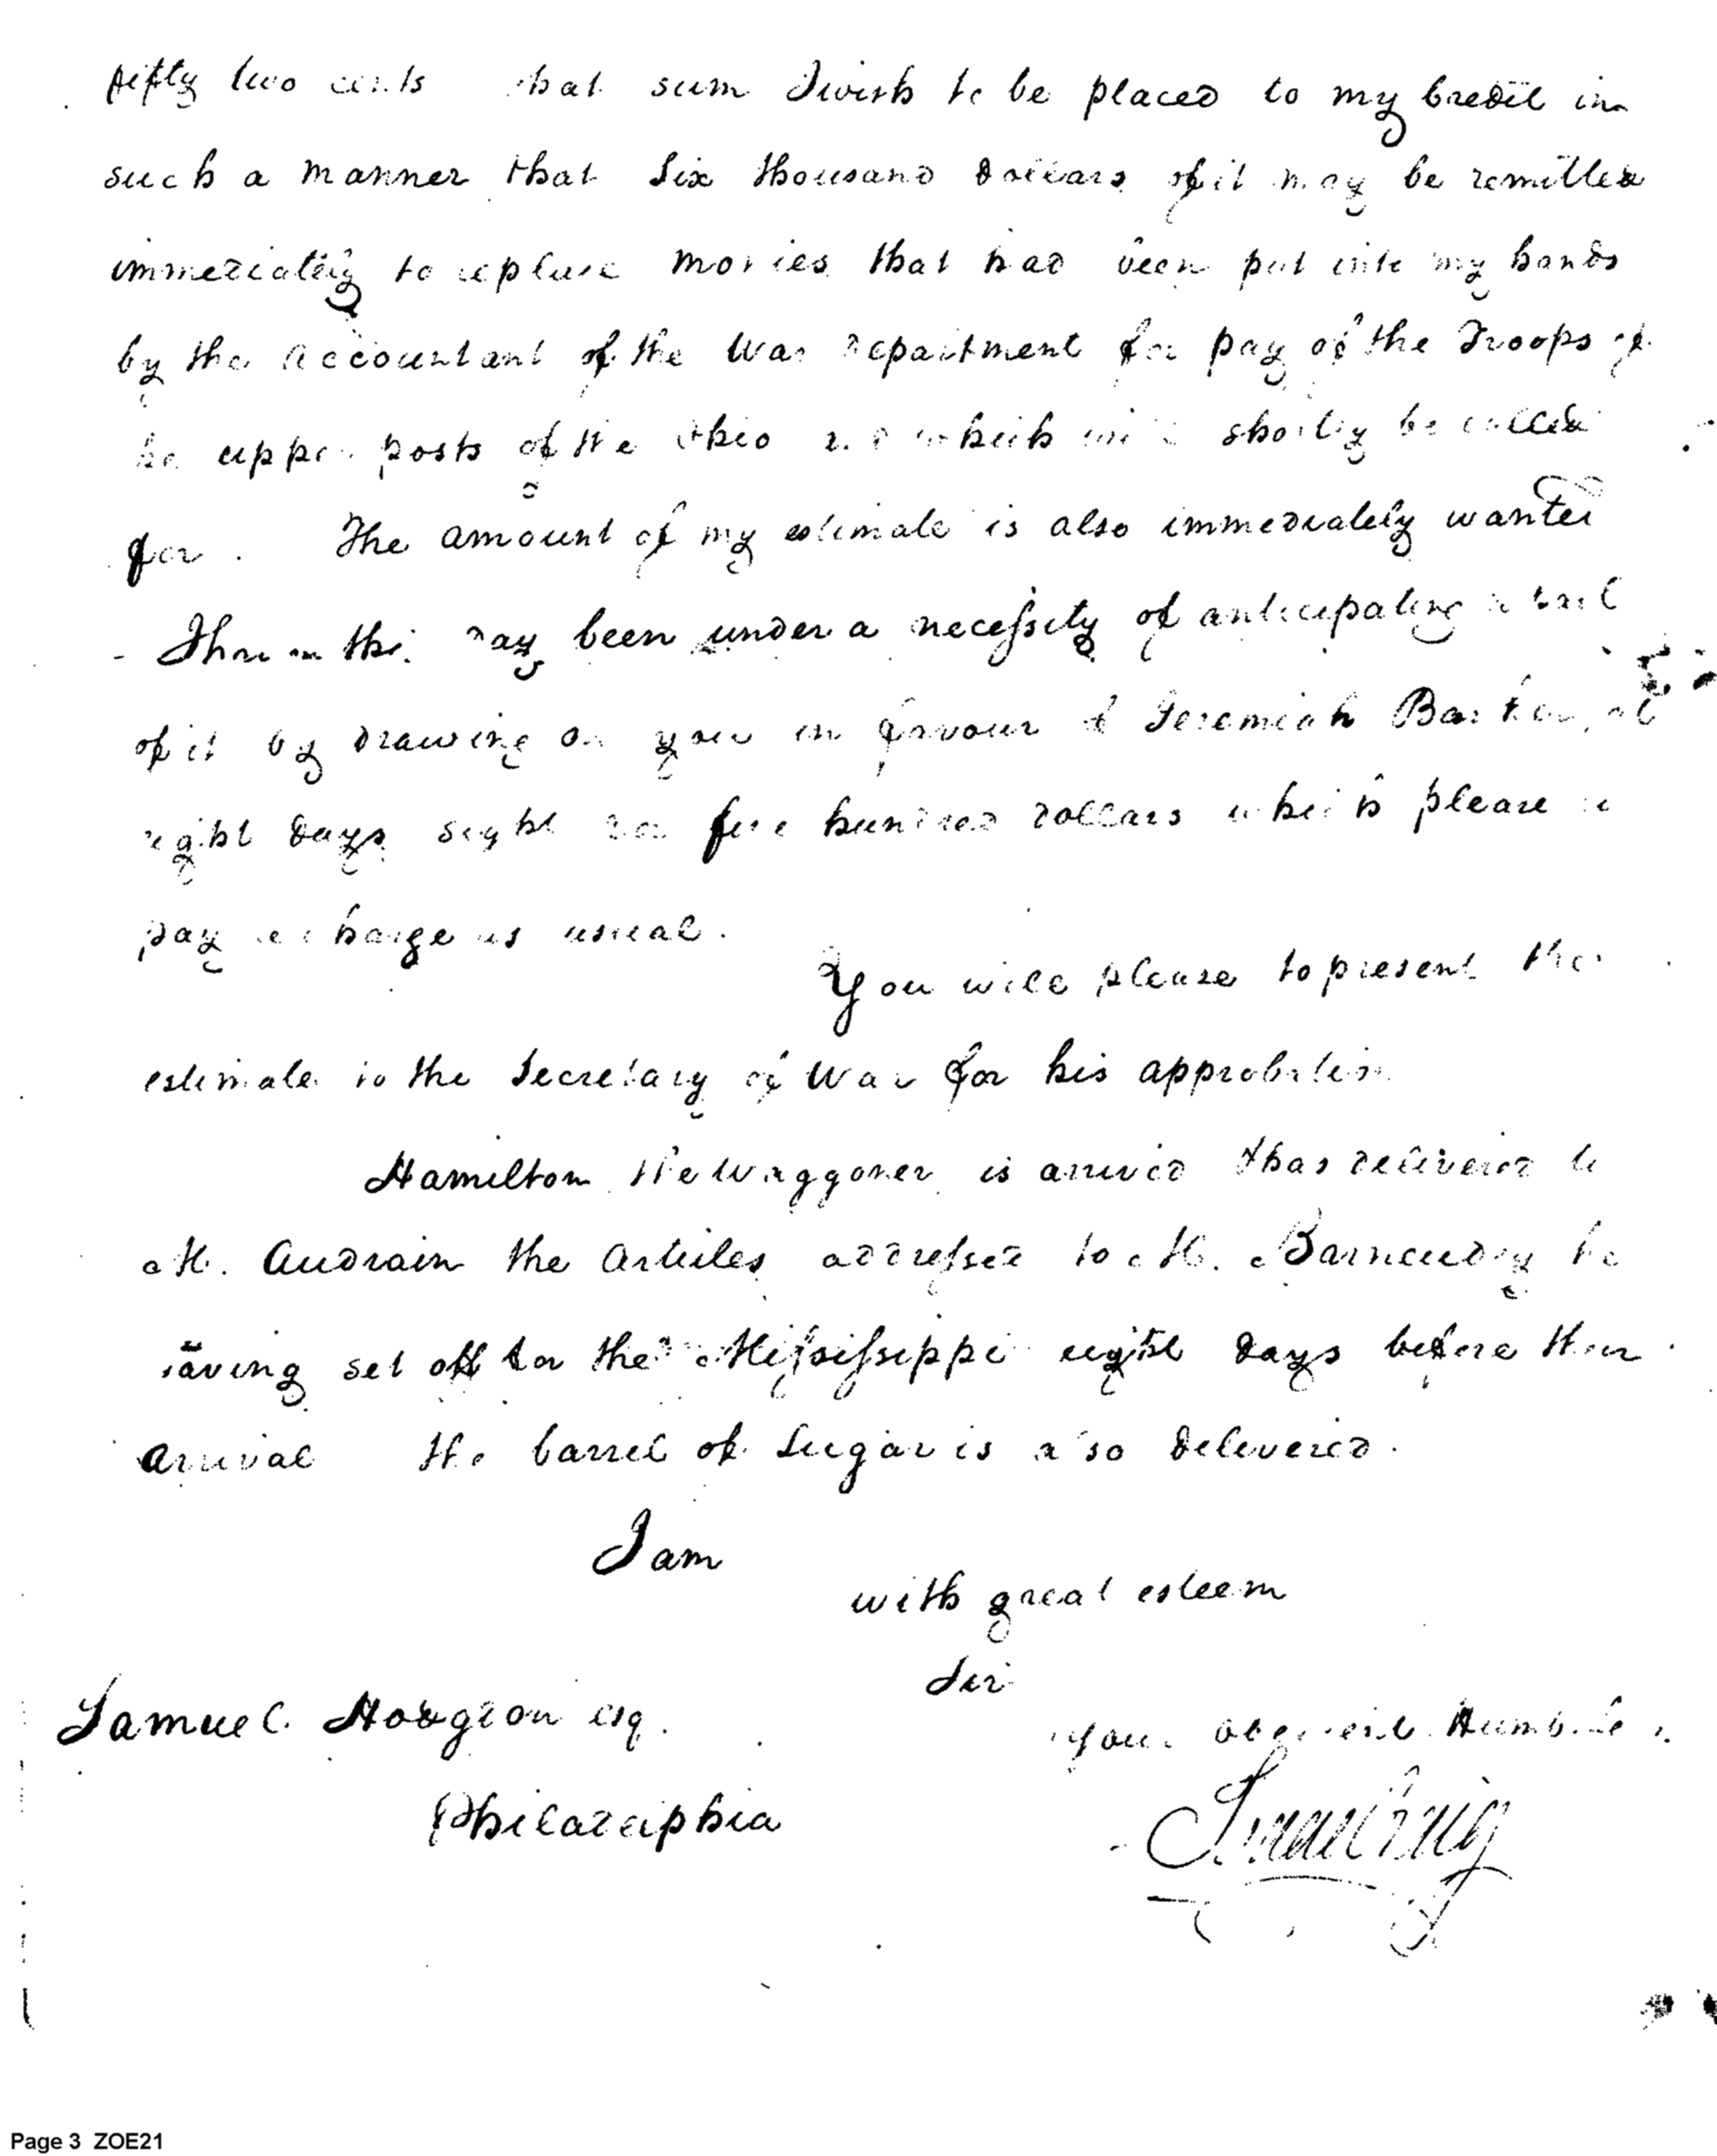 fifty two cents that sum I wish to be placed to my Credit in
such a manner that Six thousand dollars of it may be remitted
immediately to replace monies that had been put into my hands
by the Accountant of the War department for pay of the Troops of
the upper posts of the Ohio & which will shortly be called
for. The amount of my estimate is also immediately wanted
I have this day been under a necessity of anticipating a part
of it by drawing on you in favour of Jeremiah Barker, at
eight days sight for five hundred dollars which please to
pay & charge as usual.
You will please to present the
estimate to the Secretary of War for his approbation
Hamilton the Waggoner is arrived & has delivered to
Mr. Audrain the Articles addressed to Mr. he
having set off for the Mississippi eight days before their
arrival the barrel of Sugar is also delivered.
I am
with great esteem
Sir
Samuel Hodgdon esq.
Your obedient Humble
Philadelphia
Isaac Craig
Page 3 ZOE21